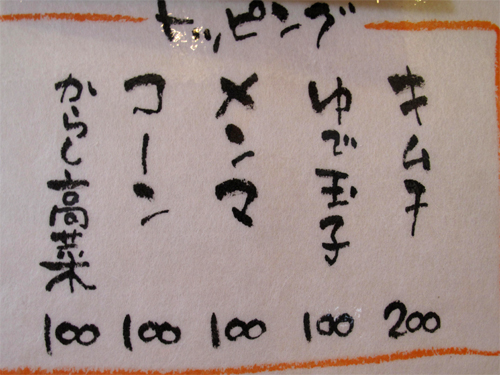 トッピング
キムチ 200
ゆで玉子 100
メンマ 100
コーン 100
からし高菜 100